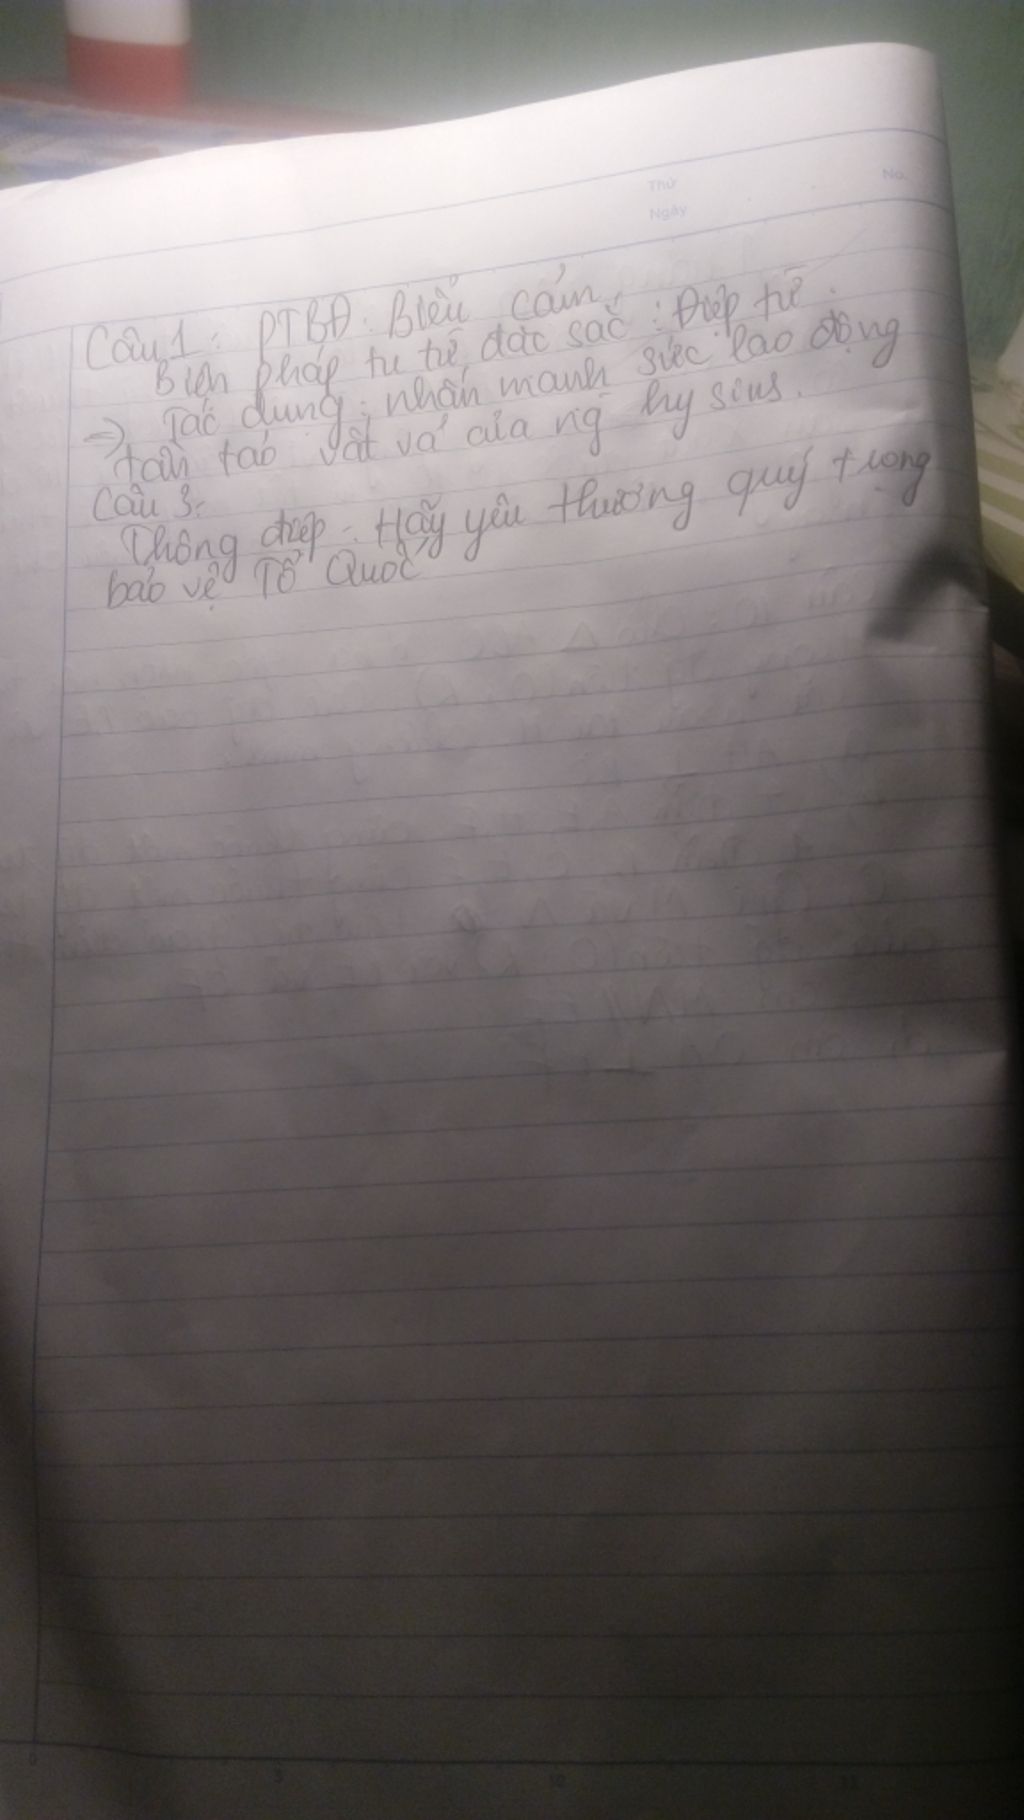 Thứ
No.
Ngày
Câu 1: PTBĐ: Biểu cảm,
Biện pháp tu từ đặc sắc: Điệp từ.
=> Tác dung: nhấn manh sức lao động
tần tảo vất vả của ng hy sins.
Câu 3:
Thông điệp: Hãy yêu thương quý trọng
bảo vệ Tổ Quốc